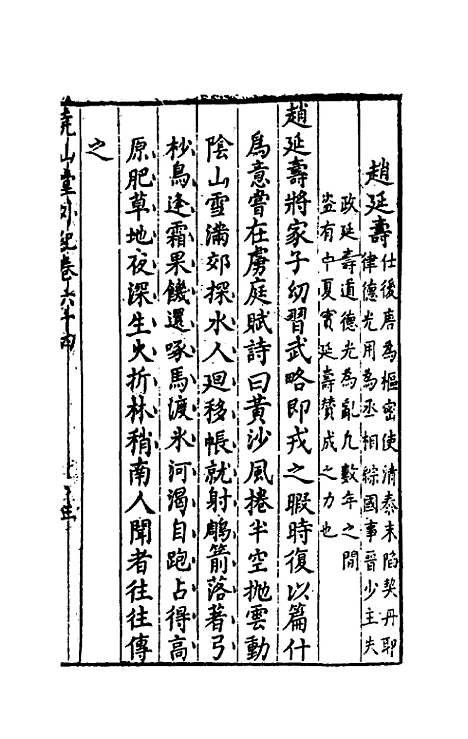 趙延壽 仕後唐為樞密使清泰末陷契丹耶
律德光用為丞相綜國事晉少主失
政延壽道德光為亂凡數年之間
盜有中夏實延壽贊成之力也
趙延壽將家子幼習武略即戎之暇時復以篇什
為意嘗在虜庭賦詩曰黃沙風捲半空抛雲動
陰山雪滿郊探水人迴移帳就射鵰箭落著弓
杪鳥逢霜果饑還啄馬渡氷河渴自跑占得高
原肥草地夜深生火折林稍南人聞者往往傳
之
堯山堂外紀卷六十四